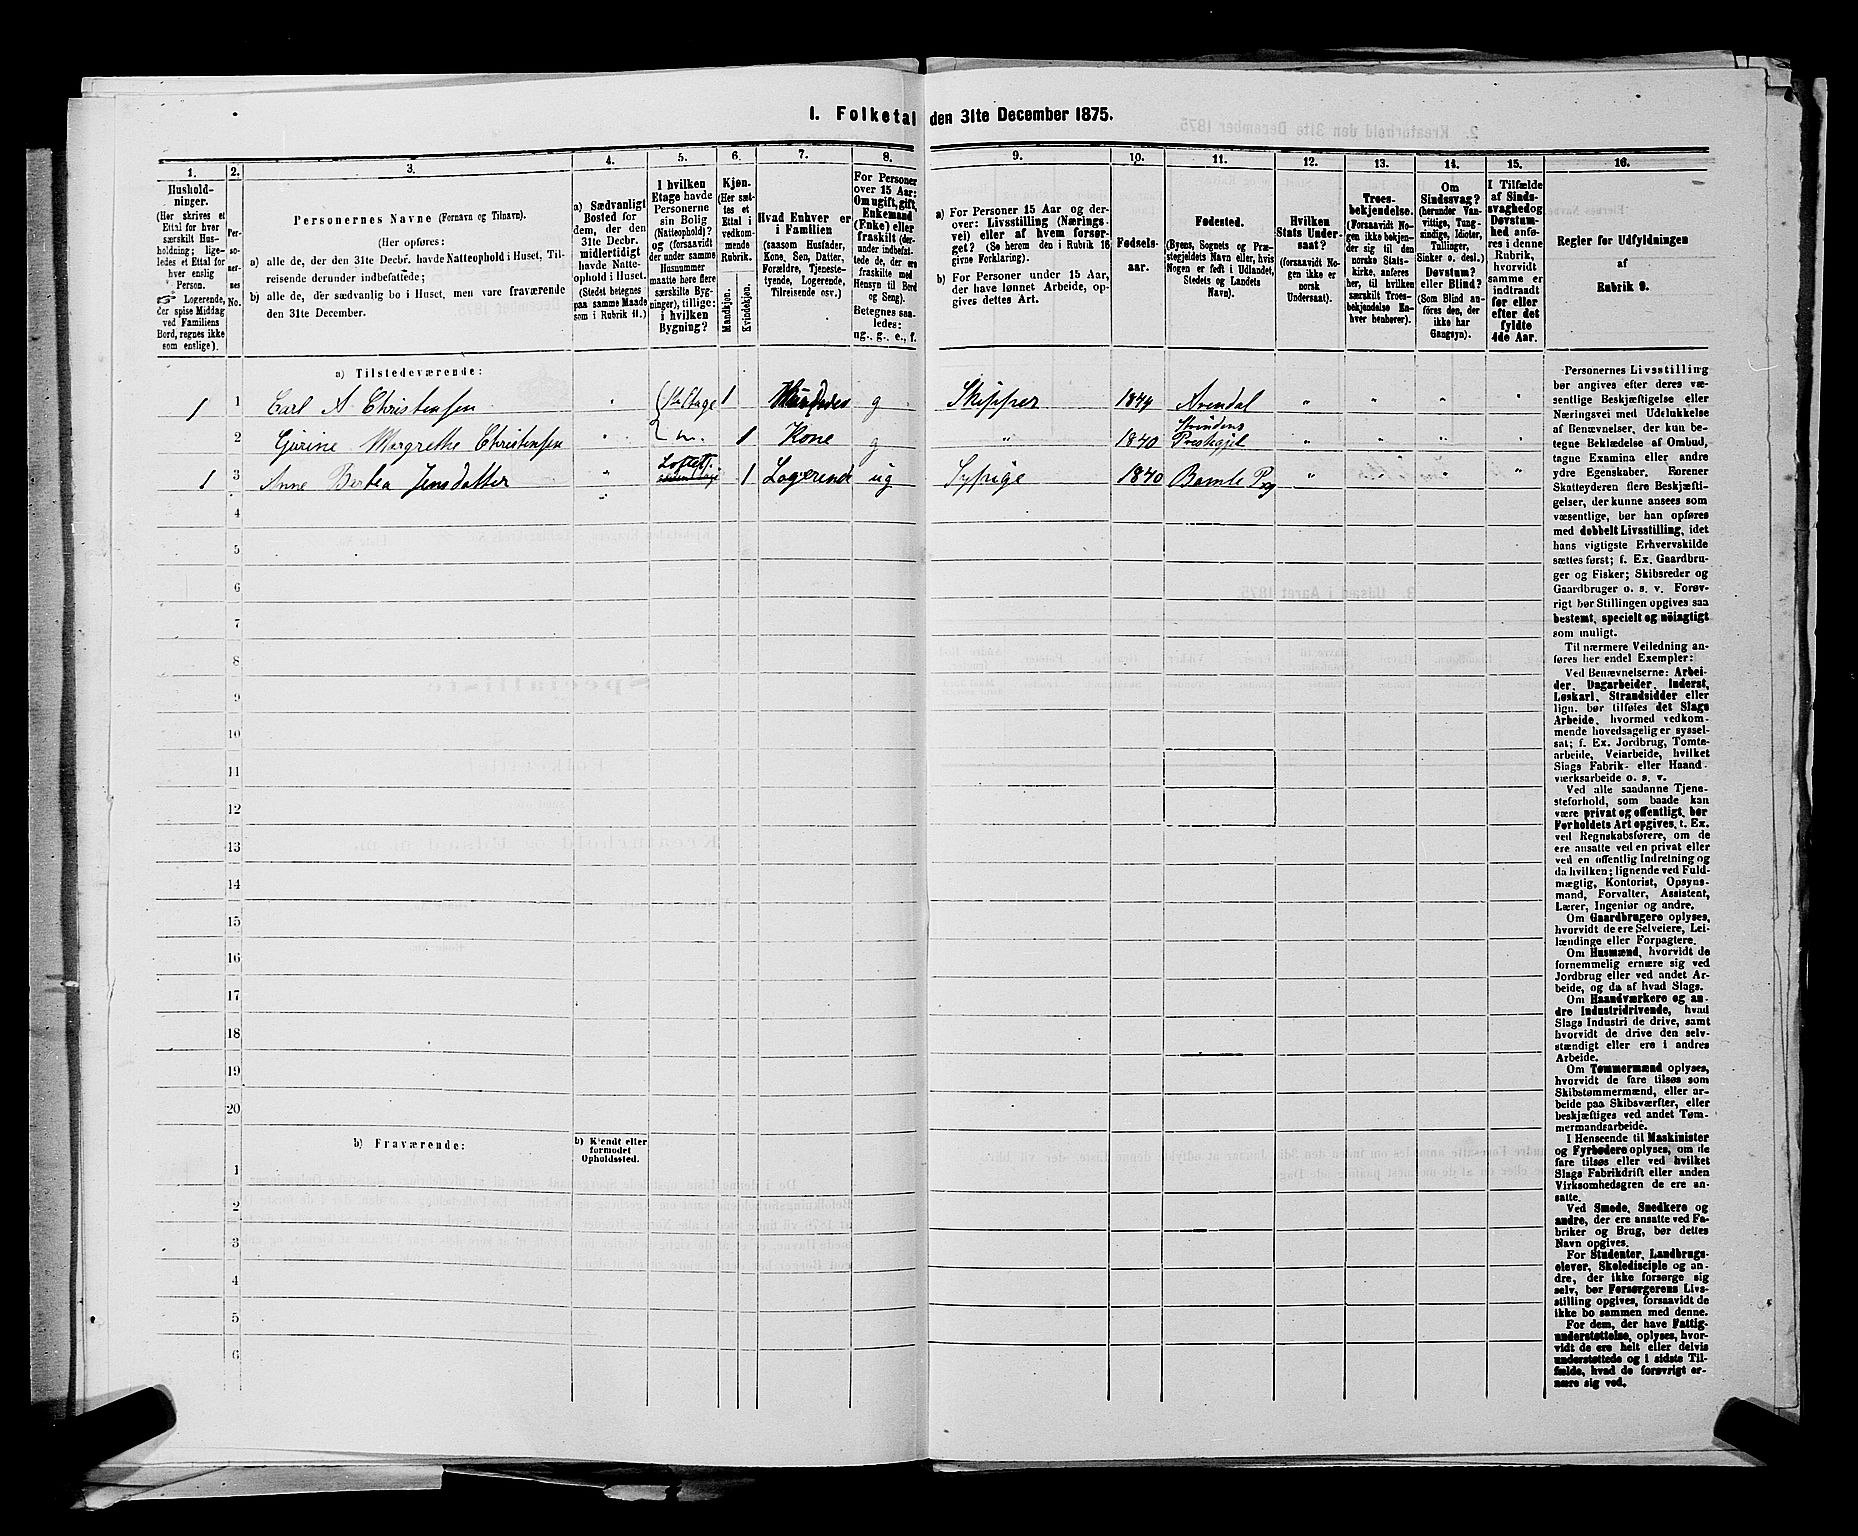 1. Folketal den 31te December 1875.
1. 2. 3. 4. 5. 6. 7. 8. 9. 10. 11. 12. 13. 14. 15. 16.
Hushold-
ninger.
(Her skrives et
Ettal for hver
særskilt Hus-
holdning; lige-
ledes et Ettal for
hver enslig
Person.
Logerende,
der spise Middag
ved Familiens
Bord, regnes ikke
som enslige).
Per-
so-
ner-
nes
No.
Personernes Navne (Fornavn og Tilnavn).
(Her opføres:
a) alle de, der den 31te Decbr. havde Natteophold i Huset, Til-
reisende derunder indbefattede;
b) alle de, der sædvanlig bo i Huset, men vare fraværende
den 31te December.
a) Sædvanligt
Bosted for
dem, der den
31te Decbr.
midlertidigt
havde Natte-
ophold i Huset.
(Stedet betegnes
paa samme Maade
som i Rubrik 11.)
I hvilken
Etage havde
Personerne
sin Bolig
(Natteophold)?
og (forsaavidt
der under samme
Husnummer
maatte høre flere
særskilte Byg-
ninger), tillige:
i hvilken
Bygning?
Kjøn.
(Her sæt-
tes et
Ettal i
vedkom-
mende
Rubrik.
Mandkjøn.
Kvindekjøn.
Hvad Enhver er
i Familien
(saasom Husfader,
Kone, Søn, Datter,
Forældre, Tjeneste-
tyende, Logerende,
Tilreisende osv.)
For Personer
over 15 Aar:
Om ugift, gift,
Enkemand
(Enke) eller
fraskilt (der-
under indbefat-
tede de, der ere
fraskilte med
Hensyn til Bord
og Seng).
Betegnes saa-
ledes:
ug., g., e., f.
a) For Personer 15 Aar og der-
over: Livsstilling (Nærings-
vei) eller af hvem forsør-
get? (Se herom den i Rubrik 16
givne Forklaring).
b) For Personer under 15 Aar,
der have lønnet Arbeide, op-
gives dettes Art.
Fødsels-
aar.
Fødested.
(Byens, Sognets og Præ-
stegjeldets Navn eller, hvis
Nogen er født i Udlandet,
Stedets og Landets
Navn).
Hvilken
Stats Under-
saat?
(forsaavidt No-
gen ikke er
norsk
Undersaat).
Troes-
bekjendelse.
(Forsaavidt No-
gen ikke bekjen-
der sig til den
norske Stats-
kirke, anføres
her, til hvilken
særskilt Troes-
bekjendelse En-
hver henhører).
Om
Sindssvag?
(herunder Van-
vittige, Tung-
sindige, Idioter,
Tullinger,
Sinker o. desl.)
Døvstum?
eller Blind?
(Som Blind an-
føres den, der
ikke har
Gangsyn).
I Tilfælde
af Sinds-
svaghed og
Døvstum-
hed anfø-
res i denne
Rubrik,
hvorvidt
samme er
indtraadt
før eller
efter det
fyldte
4de Aar.
Regler for Udfyldningen
af
Rubrik 9.
a) Tilstedeværende:
1 1 Carl A Christensen " 1ste Etage 1 Husfader g Skipper Arendal " " " "
2 Gurine Margrethe Christensen " " 1 Kone g " 1840 Prestegjel " " " "
1 3 Anne Bertea Jensdatter " Loftet 1 Logerende ug Sypige 1840 Bamle Prg " "
4
5
6
7
8
9
10
11
12
13
14
15
16
17
18
19
20
b) Fraværende:
b) Kjendt eller
formodet
Opholdssted.
1
2
3
4
5
6
Personernes Livsstilling
bør angives efter deres væ-
sentlige Beskjæftigelse eller
Næringsvei med Udelukkelse
af Benævnelser, der kun be-
tegne Beklædelse af Ombud,
tagne Examina eller andre
ydre Egenskaber. Forener
Skatteyderen flere Beskjæfti-
gelser, der kunne ansees som
væsentlige, bør han opføres
med dobbelt Livsstilling, idet
hans vigtigste Erhvervskilde
sættes først; f. Ex. Gaardbru-
ger og Fisker; Skibsreder og
Gaardbruger o. s. v. Forøv-
rigt bør Stillingen opgives saa
bestemt, specielt og nøiagtigt
som muligt.
Til nærmere Veiledning an-
føres her endel Exempler:
Ved Benævnelserne: Arbei-
der, Dagarbeider, Inderst,
Løskarl, Strandsidder eller
lign. bør tilføies det Slags
Arbeide, hvormed vedkom-
mende hovedsagelig er syssel-
sat; f. Ex. Jordbrug, Tomte-
arbeide, Veiarbeide, hvilket
Slags Fabrik- eller Haand-
værksarbeide o. s. v.
Ved alle saadanne Tjene-
steforhold, som baade kan
være privat og offentligt, bør
Forholdets Art opgives, t. Ex.
ved Regnskabsførere, om de
ere ansatte ved en privat eller
ved en offentlig Indretning og
da hvilken; lignende ved Fuld-
mægtig, Kontorist, Opsyns-
mand, Forvalter, Assistent,
Lærer, Ingeniør og andre.
Om Gaardbrugere oplyses,
hvorvidt de ere Selveiere, Lei-
lændinge eller Forpagtere.
Om Husmænd, hvorvidt de
fornemmelig ernære sig ved
Jordbrug eller ved andet Ar-
beide, og da af hvad Slags.
Om Haandværkere og an-
dre Industridrivende, hvad
Slags Industri de drive, samt
hvorvidt de drive den selv-
stændigt eller ere i andres
Arbeide.
Om Tømmermænd oplyses,
hvorvidt de fare tilsøs som
Skibstømmermænd, eller ar-
beide paa Skibsværfter, eller
beskjæftiges ved andet Tøm-
mermandsarbeide.
I Henseende til Maskinister
og Fyrbødere oplyses, om de
fare tilsøs eller ved hvilket
Slags Fabrikdrift eller anden
Virksomhedsgren de ere an-
satte.
Ved Smede, Snedkere og
andre, der ere ansatte ved Fa-
briker og Brug, bør dettes
Navn opgives.
For Studenter, Landbrugs-
elever, Skoledisciple og an-
dre, der ikke forsørge sig
selv, bør Forsørgerens Livs-
stilling opgives, forsaavidt de
ikke bo sammen med denne.
For dem, der have Fattig-
understøttelse, oplyses, hvor-
vidt de ere helt eller delvis
understøttede og i sidste Til-
fælde, hvad de forøvrigt er-
nære sig ved.